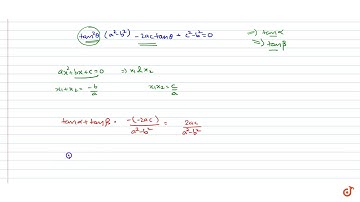 tan²θ (a²-b²) -2ac tanθ + c²-b²=0 ⇒) tanα
⇒) tanβ
ax²+bx+c=0 ⇒ x₁ & x₂
x₁+x₂ = -b/a x₁x₂ = c/a
tanα+tanβ = -(-2ac)/a²-b² = 2ac/a²-b²